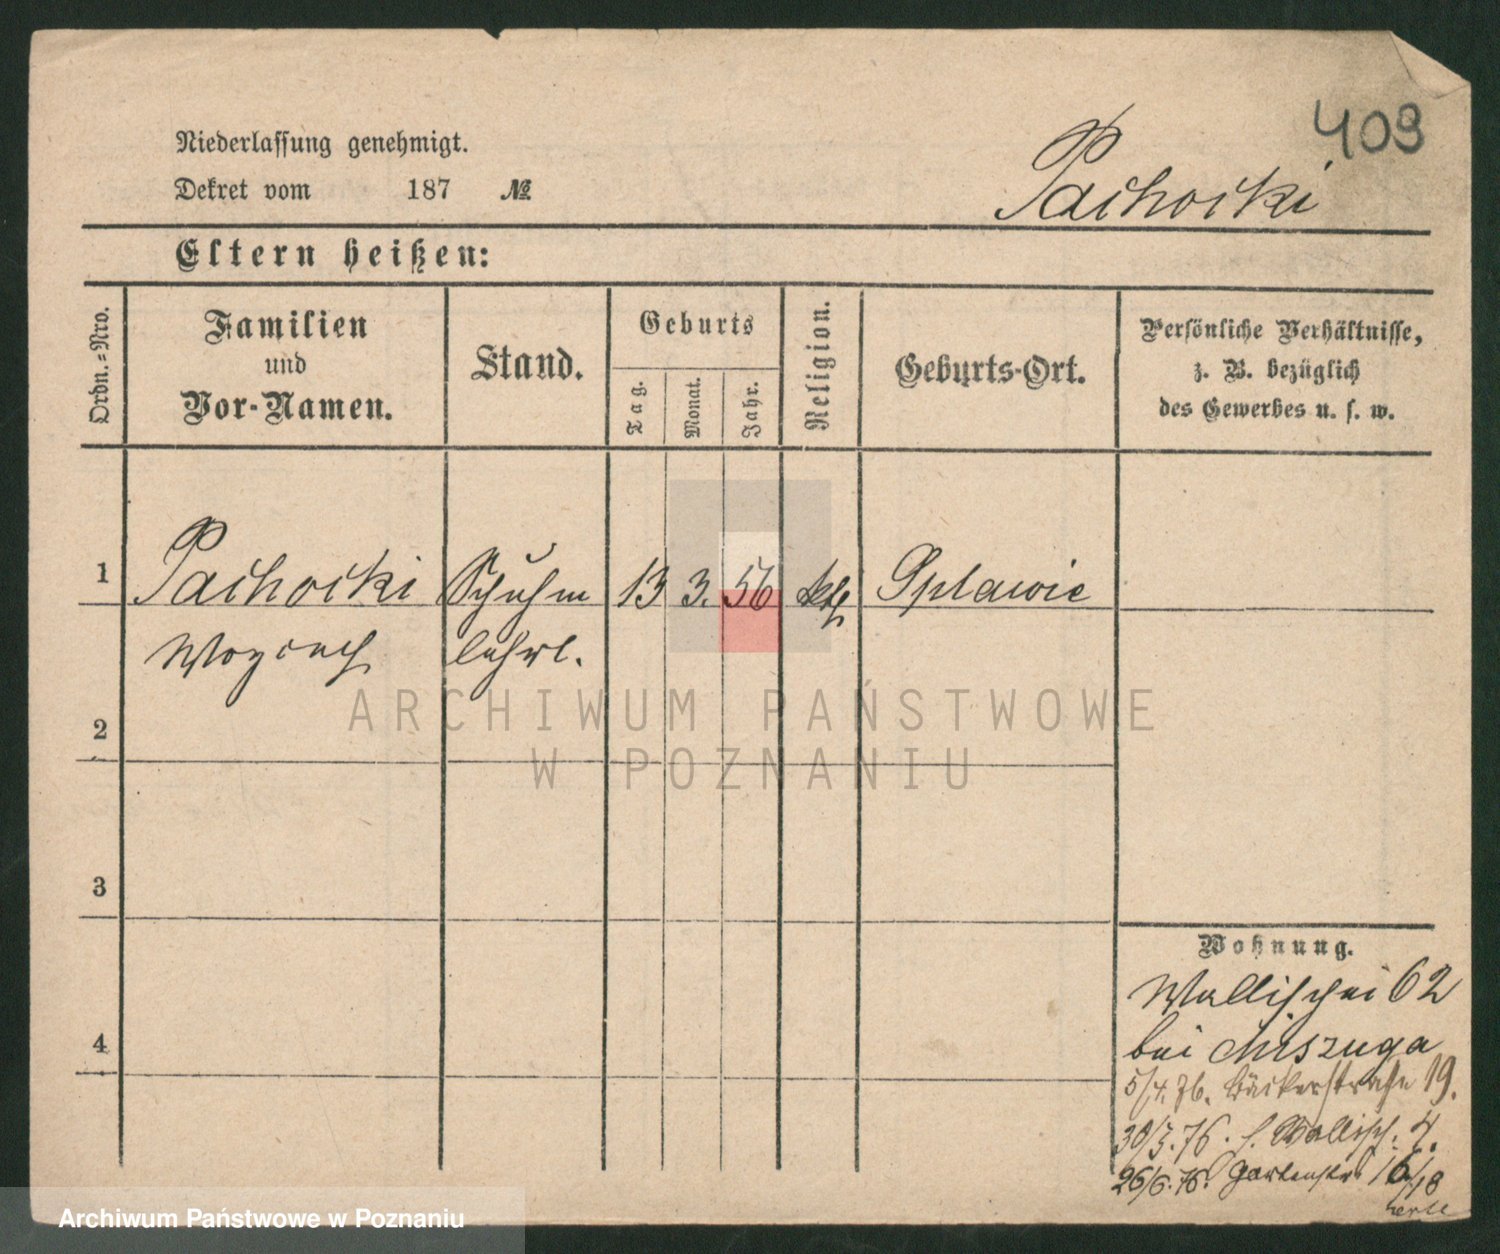 409
Niederlassung genehmigt.
Dekret vom 187 №
Pachocki
Eltern heißen:
Ordn.=Nro.
Familien
und
Vor-Namen.
Stand.
Geburts
Tag.
Monat.
Jahr.
Religion.
Geburts-Ort.
Persönliche Verhältnisse,
z. B. bezüglich
des Gewerbes u. s. w.
1 Pachocki Schuhm 13 3. 56 kth Splawie
Woyciech lehrl.
2
3
4
Wohnung.
Wallischei 62
bei
5/4. 76. Bäckerstraße 19.
30/5. 76. Wallisch. 4.
26/6. 76. Gartenstr 16/18
ARCHIWUM PAŃSTWOWE
W POZNANIU
Archiwum Państwowe w Poznaniu